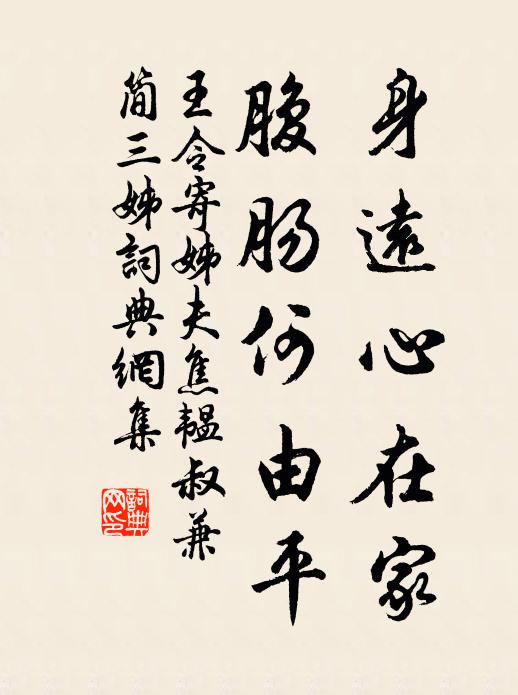 身遠心在家
腹腸何由平
王令寄姊夫焦韞叔兼
簡三姊詞典網集
詞典
网印